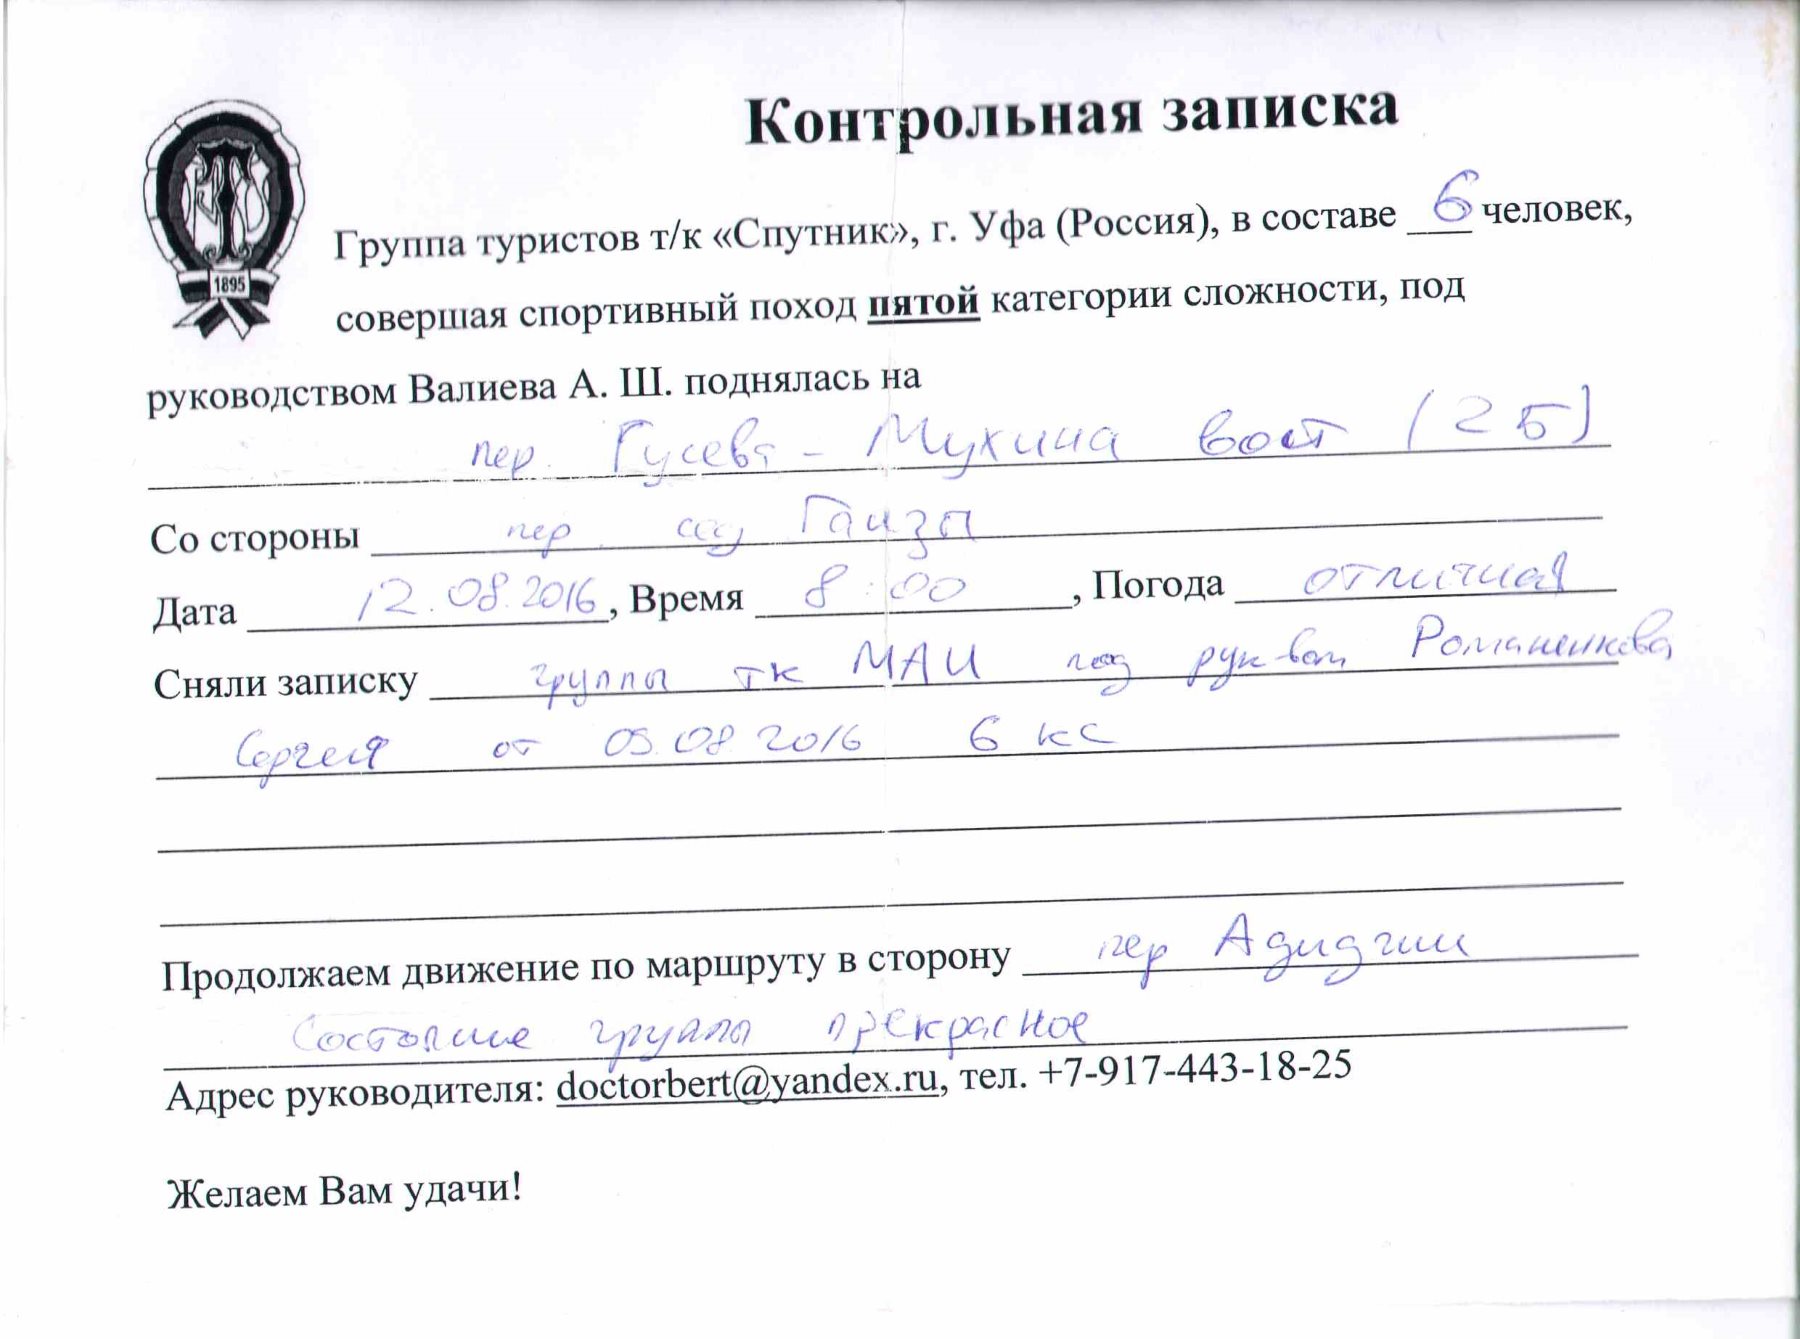 Контрольная записка
Группа туристов т/к «Спутник», г. Уфа (Россия), в составе 6 человек,
совершая спортивный поход пятой категории сложности, под
1895
руководством Валиева А. Ш. поднялась на
пер. Гусева - Мухина вост (2Б)
Со стороны пер. Гаиза
Дата 12.08.2016, Время 8:00, Погода отличная
Сняли записку группы тк МАИ под рук-вом Романенкова
Сергея от 05.08.2016 6 кс
Продолжаем движение по маршруту в сторону пер Адидгии
Состояние группы прекрасное
Адрес руководителя: doctorbert@yandex.ru, тел. +7-917-443-18-25
Желаем Вам удачи!